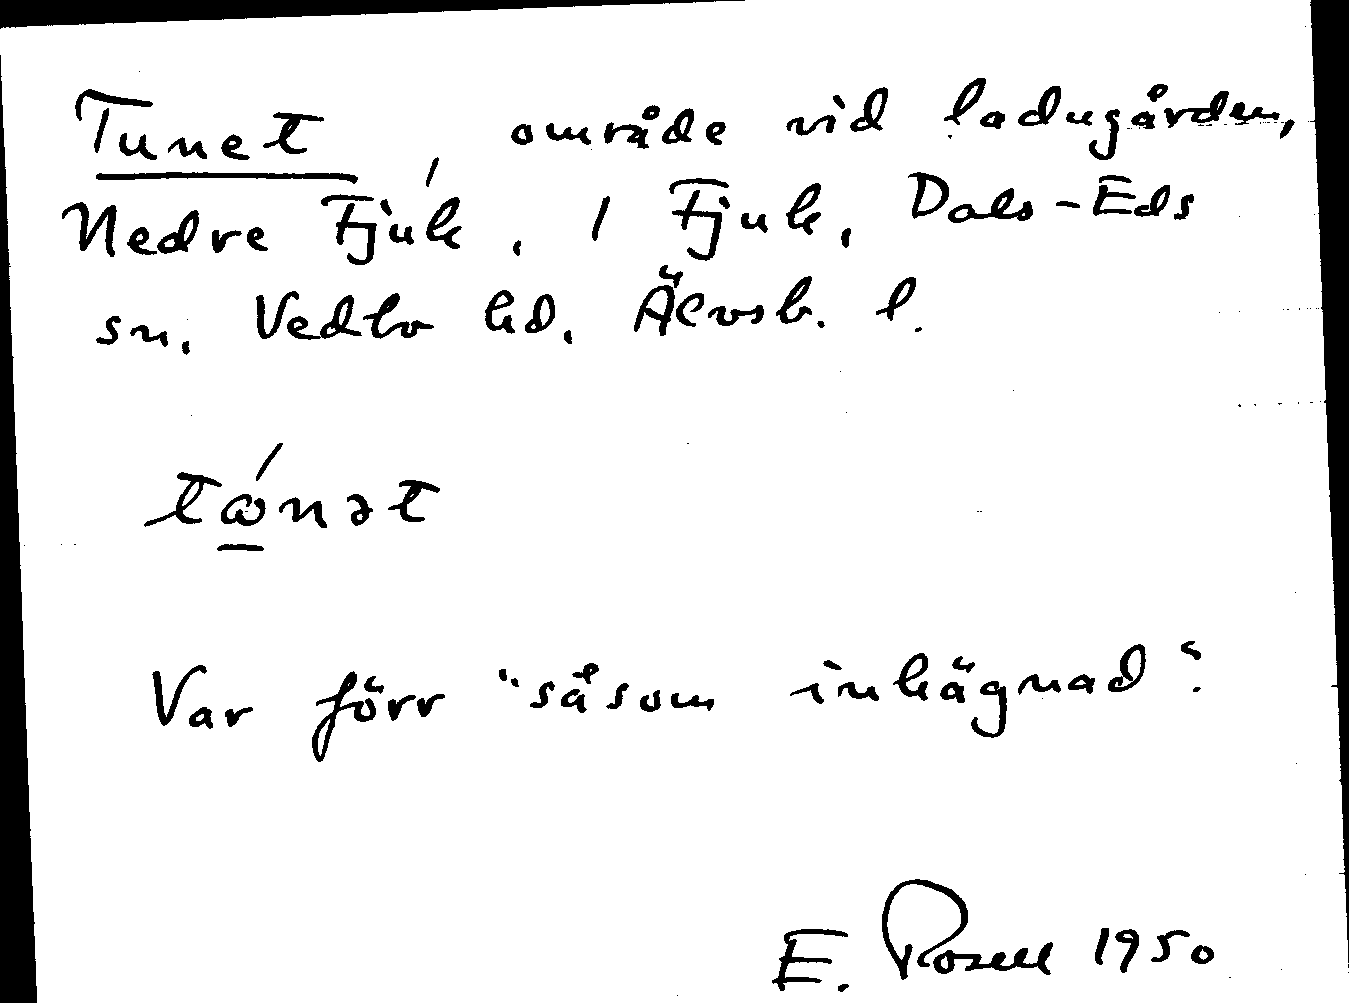 Tunet, område vid ladugården,
Nedre Fjuk, 1 Fjuk, Dals-Eds
sn. Vedbo hd. Älvsb. l.
tⱷ́nət
Var förr "såsom inhägnad".
E. Rosell 1950